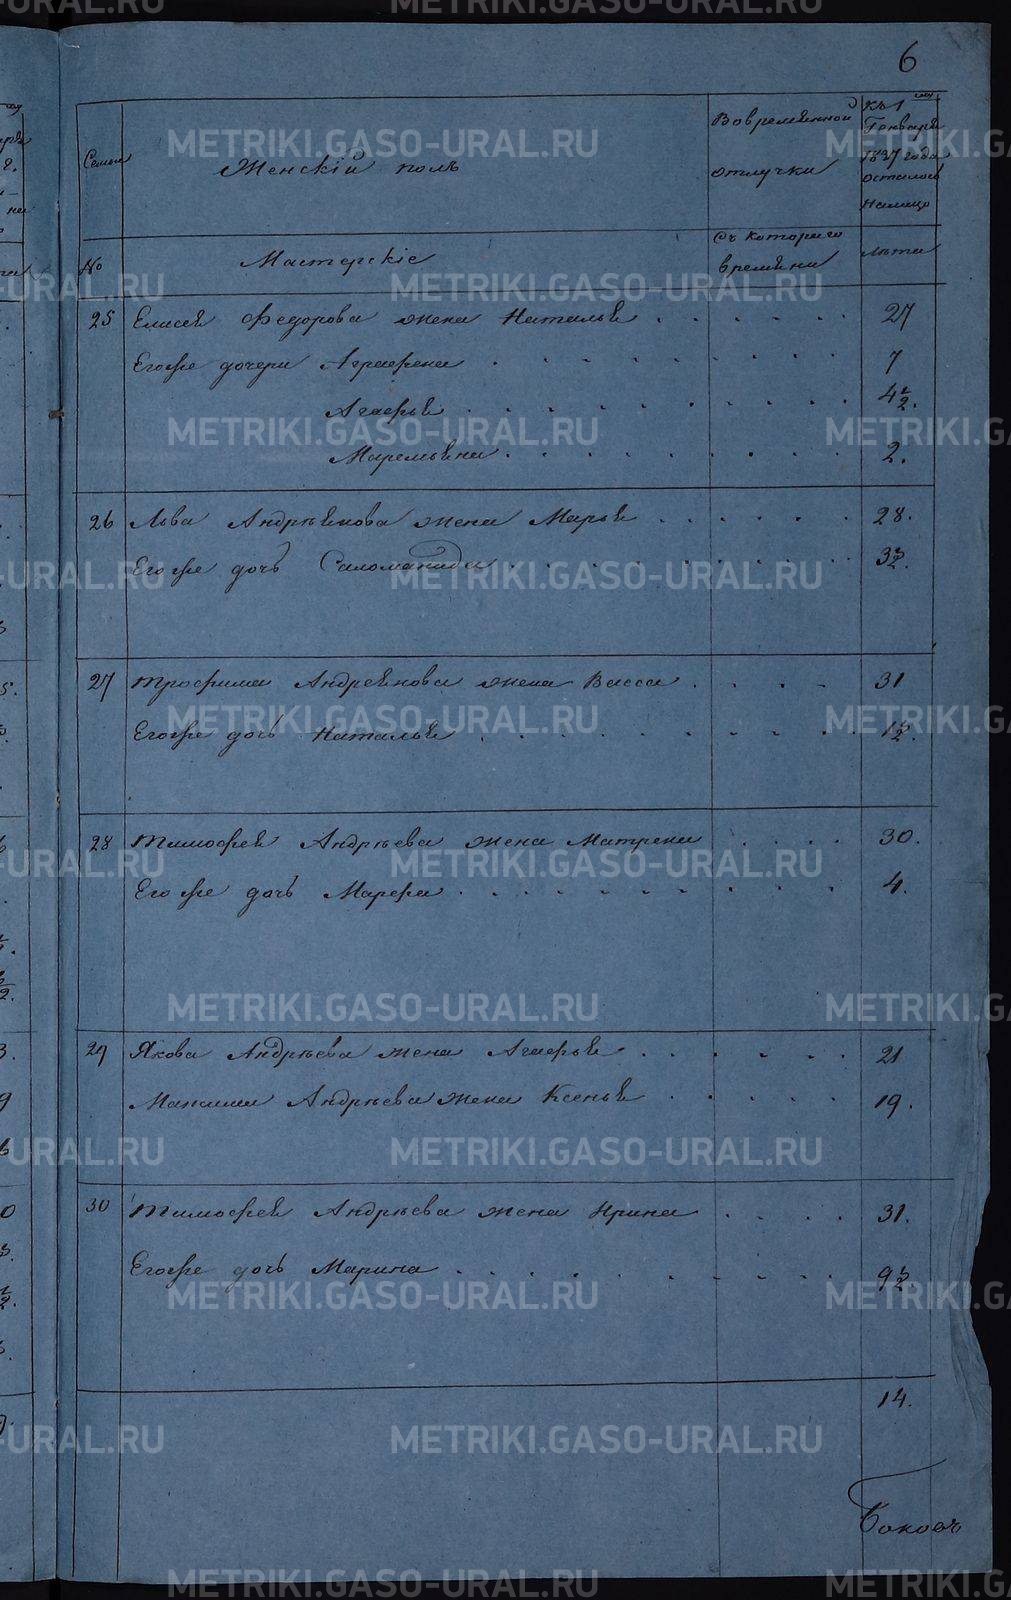 6
Семьи
Женскій полъ
Во временной отлучки
Къ 1му Генваря 1837 года осталось на лицо
№
Мастерскіе
Съ котораго времени
Лѣта
25 Елисея Федорова жена Наталья 27
Его же дочери Аграфена 7
Агафья 4½.
Маремьяна 2.
26 Льва Андреянова жена Марья 28.
Его же дочь Саломанида 3½.
27 Трофима Андреянова жена Васса 31
Его же дочь Наталья 1½
28 Тимофея Андрѣева жена Матрена 30.
Его же дочь Марфа 4.
29 Якова Андрѣева жена Агафья 21
Максима Андрѣева жена Ксенья 19.
30 Тимофея Андрѣева жена Ирина 31.
Его же дочь Марина 9½.
14.
Боковъ
METRIKI.GASO-URAL.RU